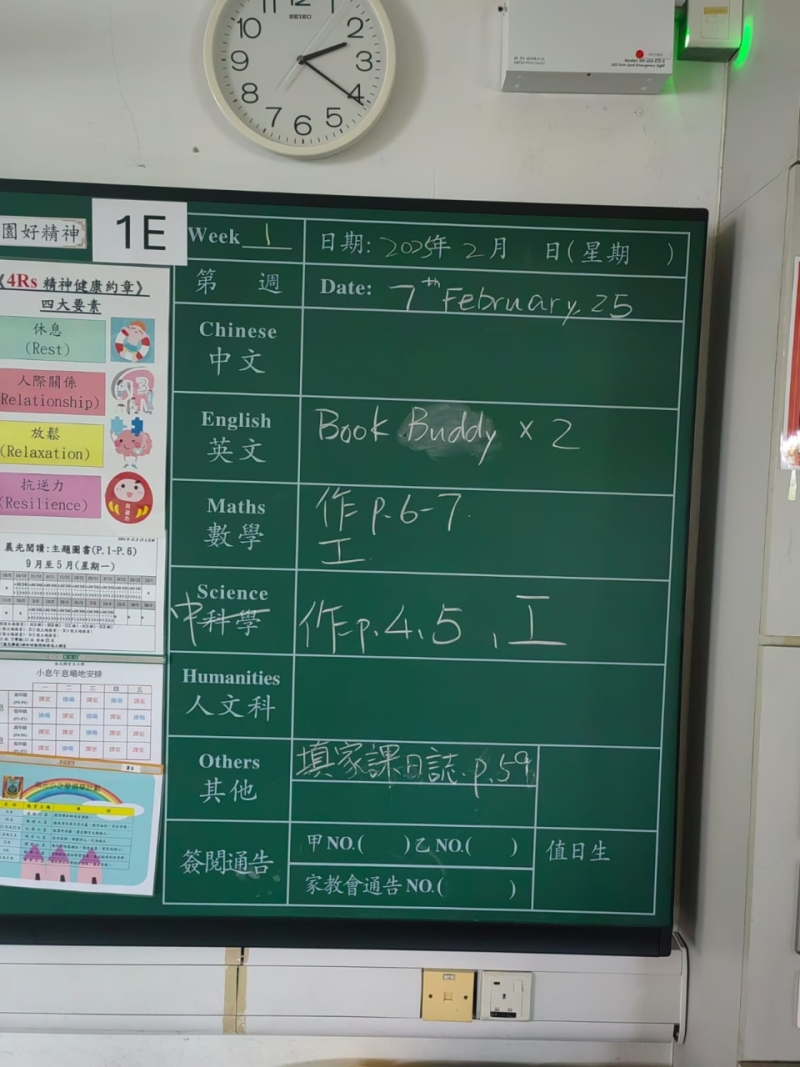 10
2
9
3
8
4
7
6
5
SEIKO
園好精神
1E
Week 1
日期: 2025年 2月 日(星期 )
第 週
Date: 7th February, 25
《4Rs 精神健康約章》
四大要素
休息
(Rest)
人際關係
(Relationship)
放鬆
(Relaxation)
抗逆力
(Resilience)
Chinese
中文
English
英文
Book Buddy × 2
Maths
數學
作 p.6-7.
工
Science
中科學
作 p.4、5、工
Humanities
人文科
Others
其他
填家課日誌.p.59
簽閱通告
甲NO.( )乙NO.( )
家教會通告NO.( )
值日生
晨光閱讀:主題圖書(P.1-P.6)
9月至5月(星期一)
小息午息場地安排
一 二 三 四 五